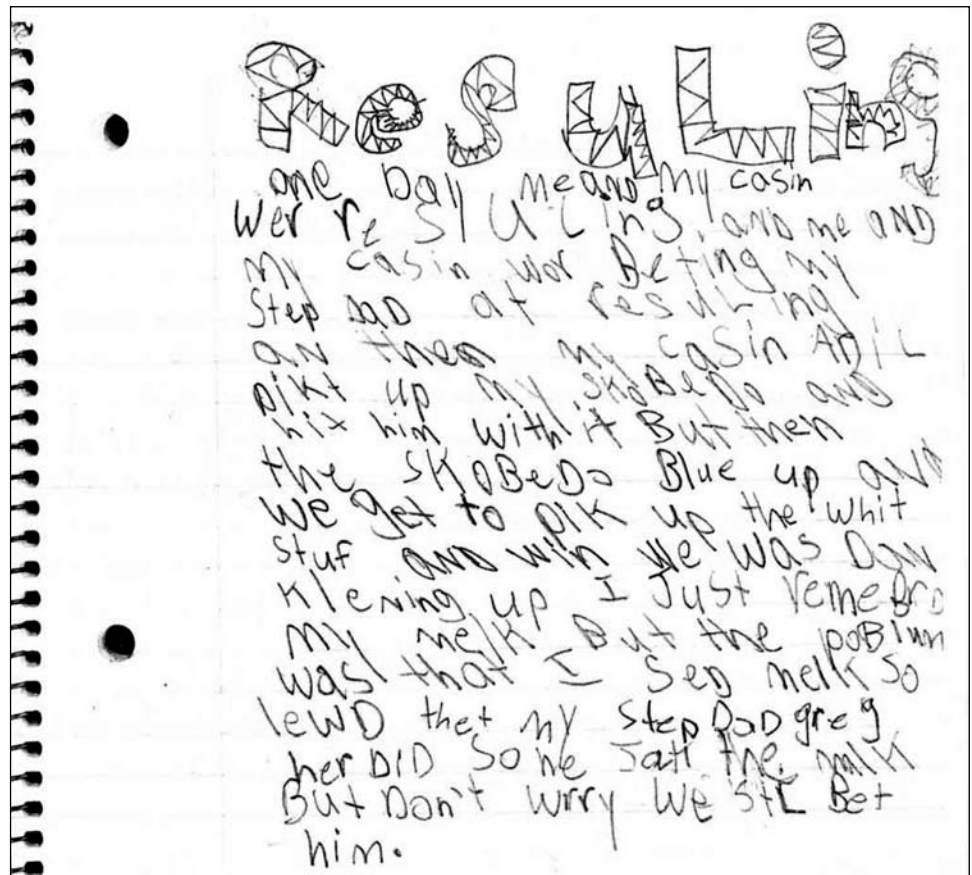 ResuLing
one Day me and my casin
wer re sluLing, and me AND
my casin wor Beting my
Step DaD at resuLing
an then my casin
pikt up my SkoBeDo and
hit him with it But then
the SKoBeDo Blue up AND
we get to pik up the whit
stuf AND win we was Dun
Klening up I Just remeBrD
my melk But the poBlum
was that I SeD melk So
lewD thet my StepDaD greg
herD DID So he the malk
But Don't wrry we StiL Bet
him.